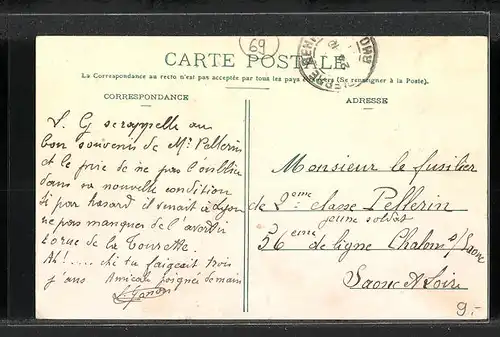 69
CARTE POSTALE
La Correspondance au recto n'est pas acceptée par tous les pays (Se renseigner à la Poste).
CORRESPONDANCE
ADRESSE
L. G se rappelle au
bon souvenir de Mr Pellerin
et le prie de ne pas l'oublier
dans sa nouvelle condition
Si par hasard il venait à Lyon
ne pas manquer de l'avertir
rue de la Tourette
Ah!.... chi tu faigeait trois
j'ans Amicale poignée de main
L. Ganon
Monsieur le fusilier
de 2eme classe Pellerin
jeune soldat
56eme de ligne Chalons s/ Saone
Saone & Loire
9.-